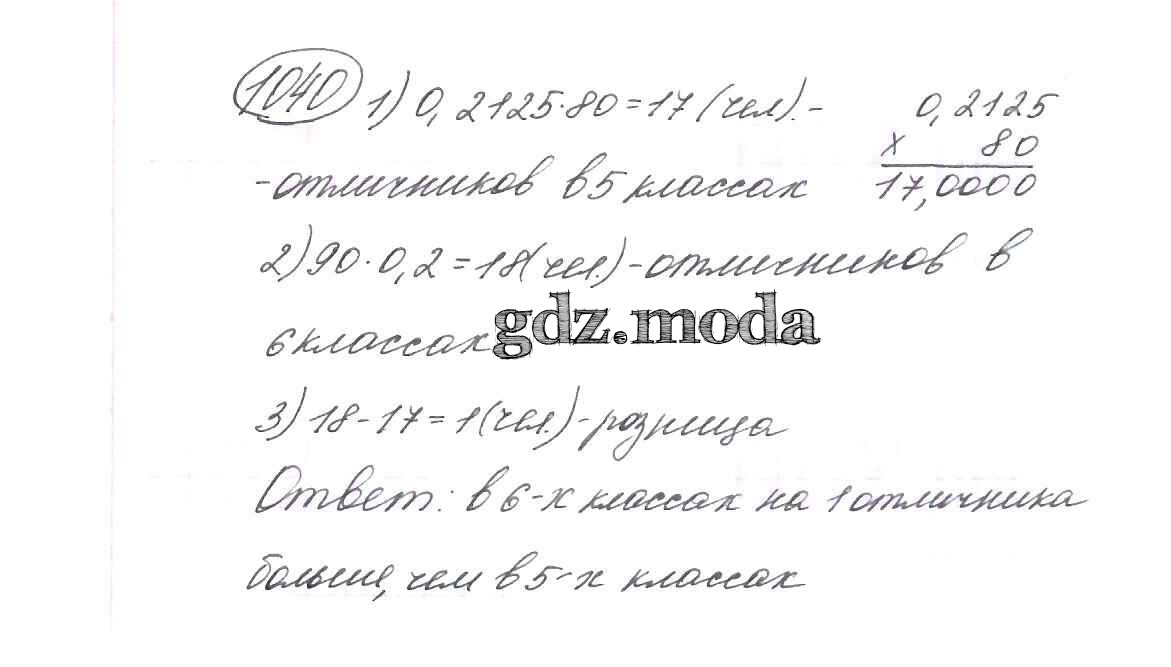 1040 1) 0,2125·80=17 (чел).- 0,2125
х 80
-отличников в 5 классах 17,0000
2) 90·0,2=18(чел.)-отличников в
6 классах gdz.moda
3) 18-17=1(чел.)-розница
Ответ: в 6-х классах на 1 отличника
больше, чем в 5-х классах